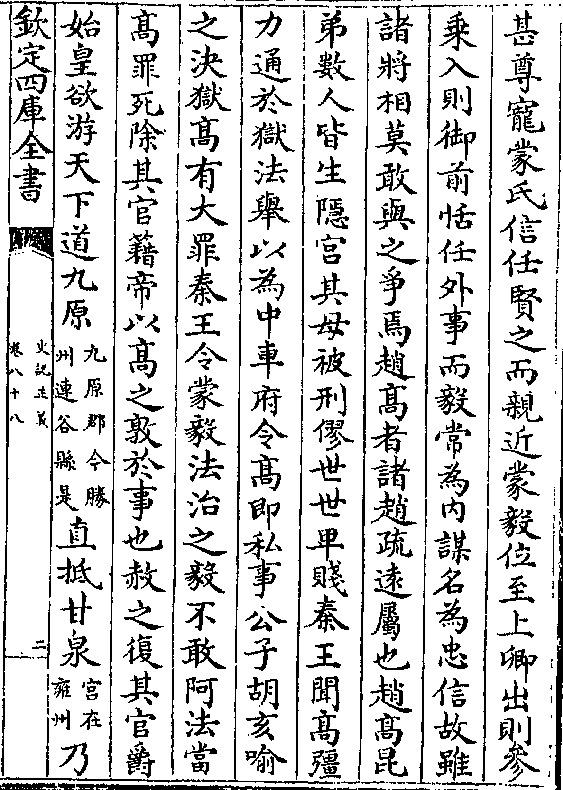 甚尊寵蒙氏信任賢之而親近蒙毅位至上卿出則參
乘入則御前恬任外事而毅常為內謀名為忠信故雖
諸將相莫敢與之爭焉趙髙者諸趙疏逺屬也趙髙昆
弟數人皆生隱宮其母被刑僇世世卑賤秦王聞髙彊
力通於獄法舉以為中車府令髙即私事公子胡亥喻
之決獄髙有大罪秦王令蒙毅法治之毅不敢阿法當
髙罪死除其官籍帝以髙之敦於事也赦之復其官爵
始皇欲游天下道九原九原郡今勝州連谷縣是直抵甘泉宮在雍州乃
欽定四庫全書
史記正義
卷八十八
二